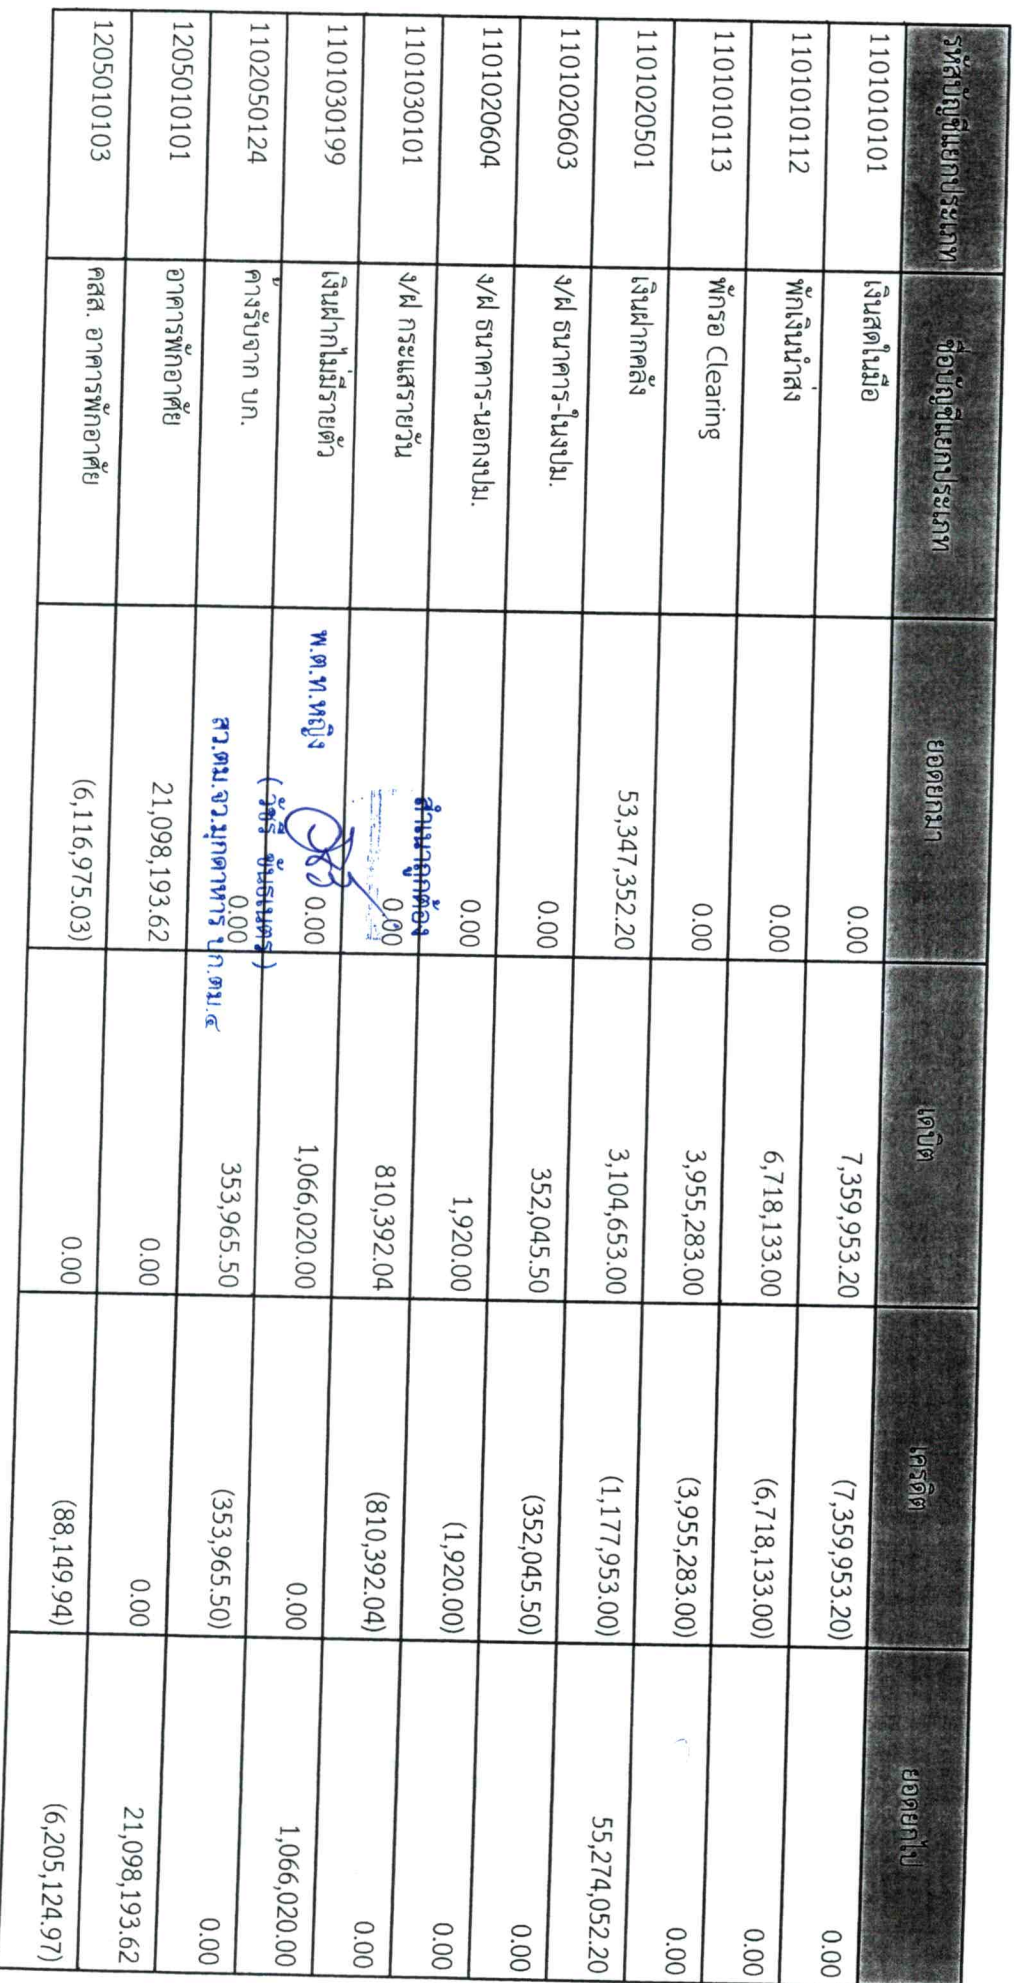 รหัสบัญชีแยกประเภท ชื่อบัญชีแยกประเภท ยอดยกมา เดบิต เครดิต ยอดยกไป
1101010101 เงินสดในมือ 0.00 7,359,953.20 (7,359,953.20) 0.00
1101010112 พักเงินนำส่ง 0.00 6,718,133.00 (6,718,133.00) 0.00
1101010113 พักรอ Clearing 0.00 3,955,283.00 (3,955,283.00) 0.00
1101020501 เงินฝากคลัง 53,347,352.20 3,104,653.00 (1,177,953.00) 55,274,052.20
1101020603 ง/ฝ ธนาคาร-ในงปม. 0.00 352,045.50 (352,045.50) 0.00
1101020604 ง/ฝ ธนาคาร-นอกงปม. 0.00 1,920.00 (1,920.00) 0.00
สำเนาถูกต้อง
1101030101 ง/ฝ กระแสรายวัน 0.00 810,392.04 (810,392.04) 0.00
1101030199 เงินฝากไม่มีรายตัว 0.00 1,066,020.00 0.00 1,066,020.00
พ.ต.ท.หญิง
(วัชรี ขันธเนตร)
1102050124 ค้างรับจาก บก. 0.00 353,965.50 (353,965.50) 0.00
สว.ตม.จว.มุกดาหาร บก.ตม.๔
1205010101 อาคารพักอาศัย 21,098,193.62 0.00 0.00 21,098,193.62
1205010103 คสส. อาคารพักอาศัย (6,116,975.03) 0.00 (88,149.94) (6,205,124.97)